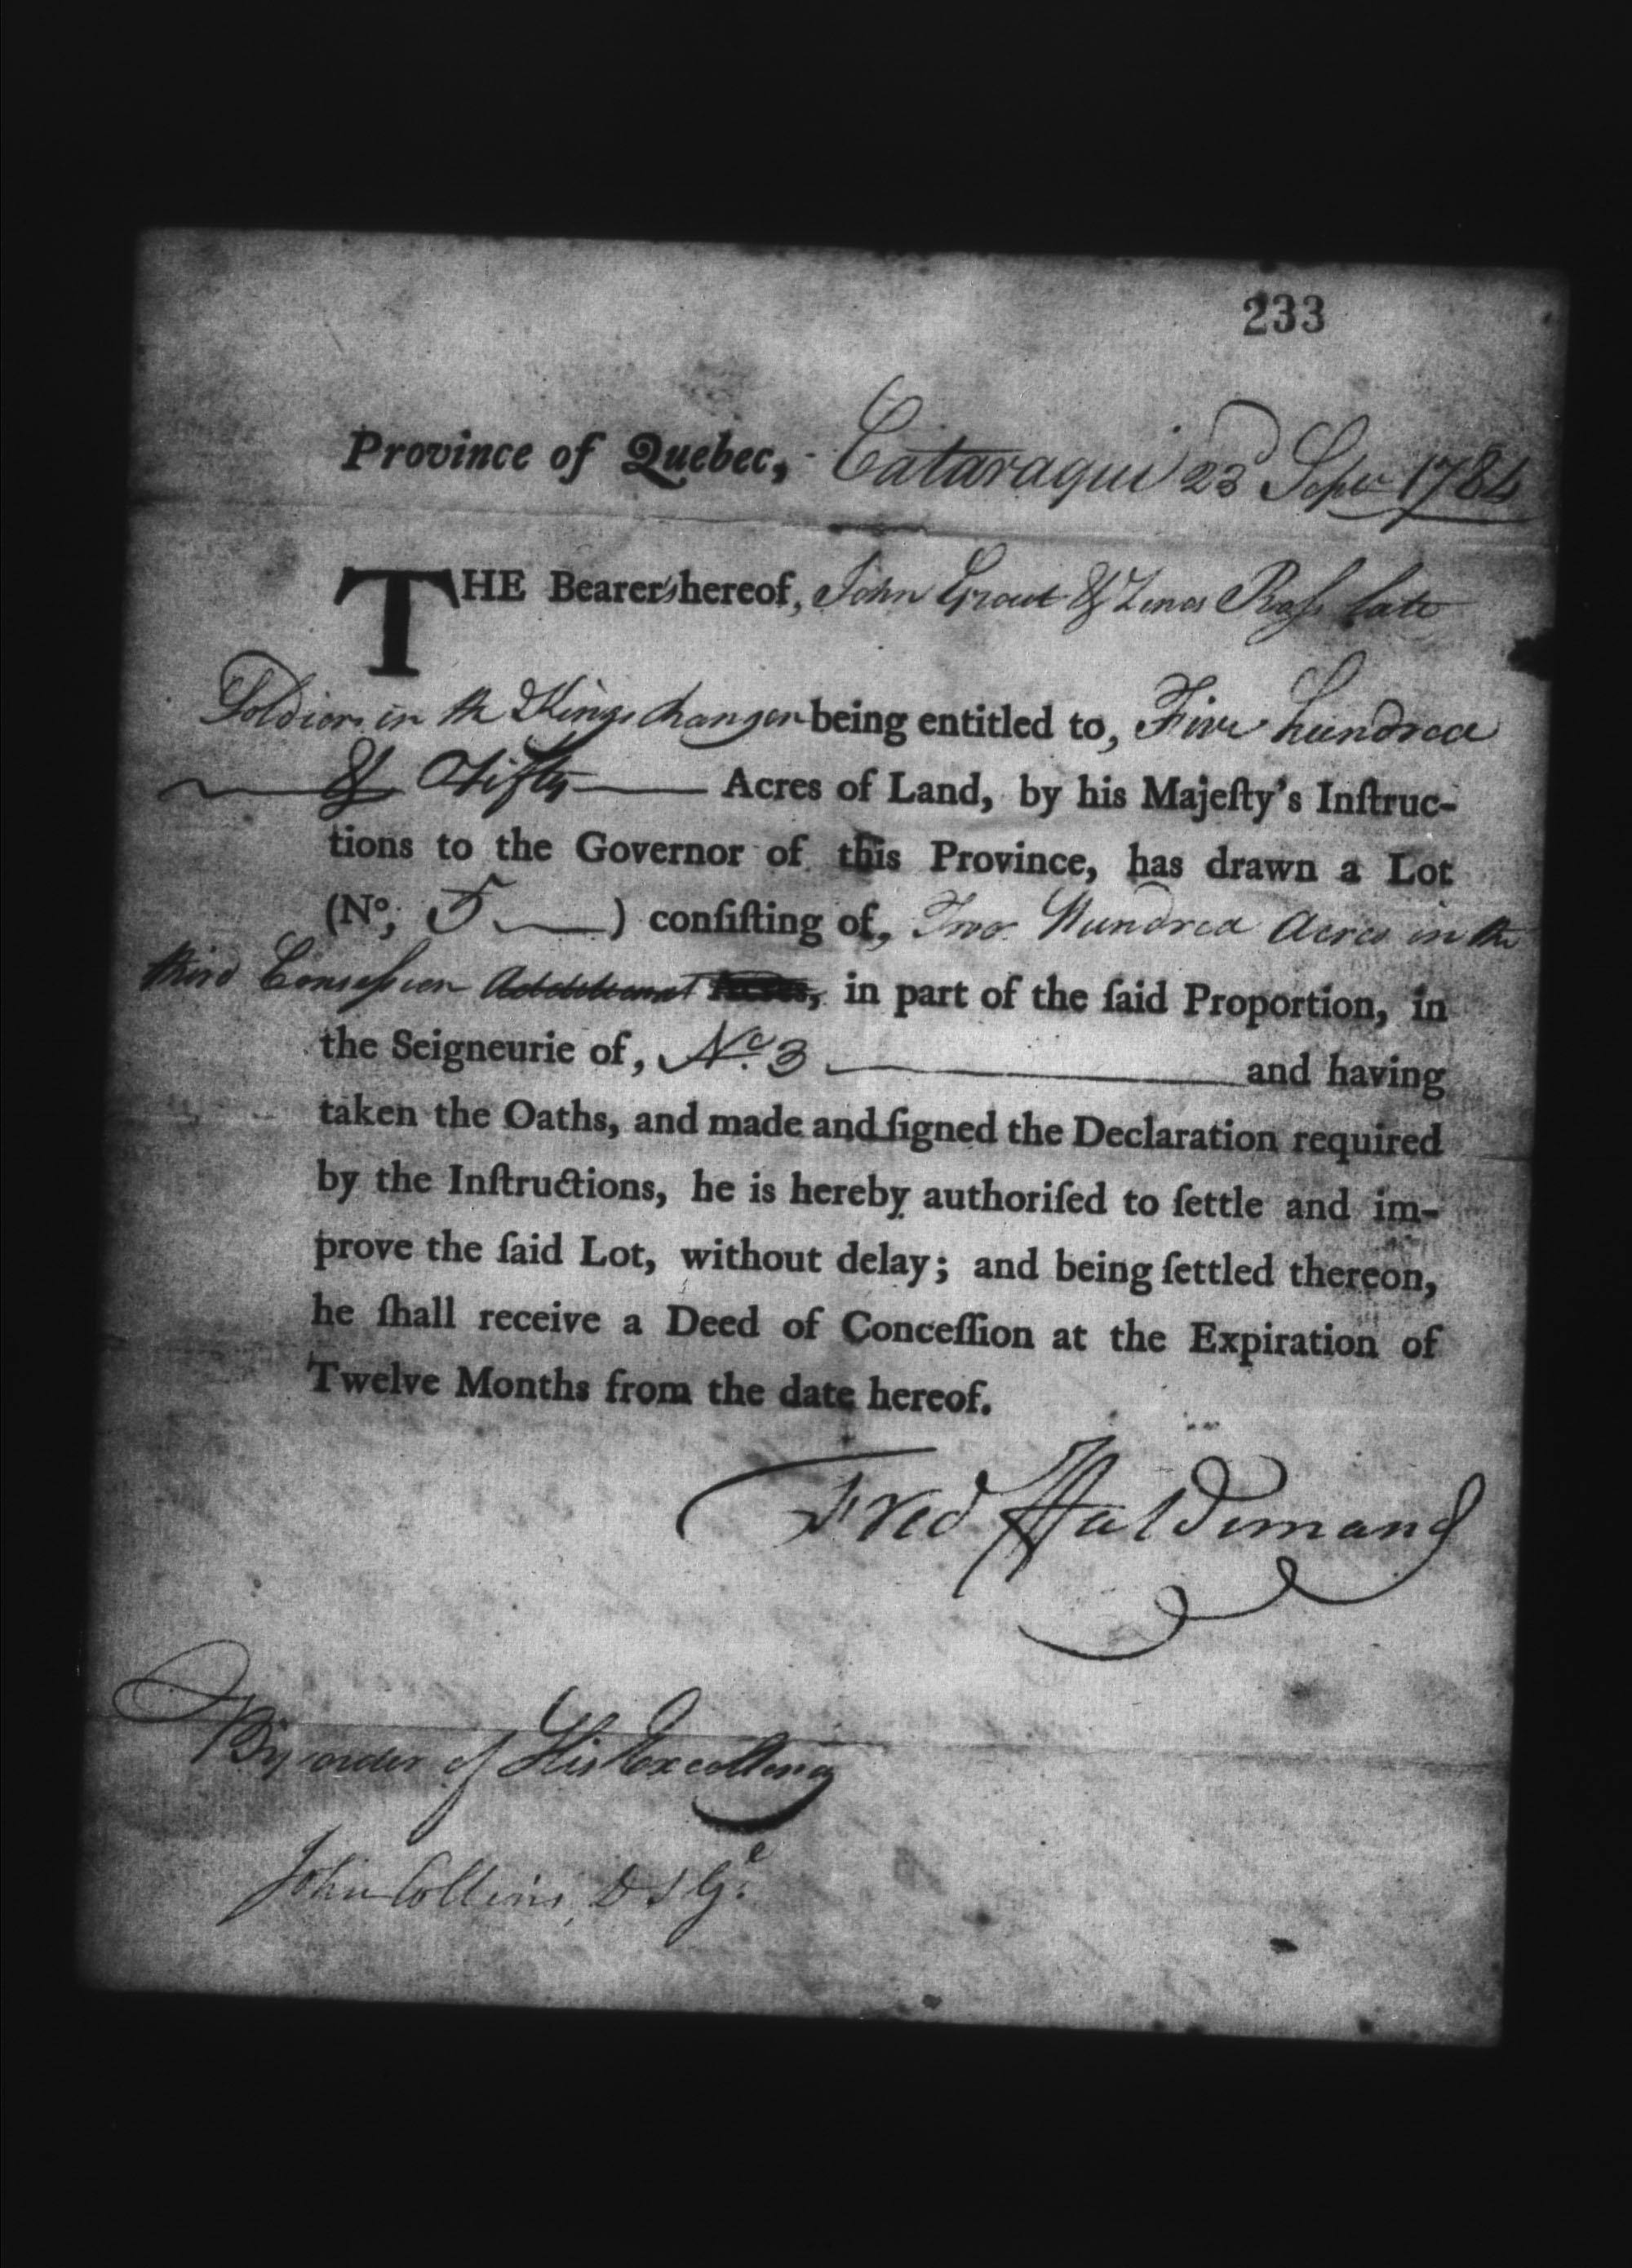 233
Province of Quebec, Cataraqui 23d Sepr 1784
THE Bearers hereof, John Grout & Zenos Ross late
Soldiers in the Kings Rangers being entitled to, Five hundred
& Fifty Acres of Land, by his Majeſty's Inſtruc-
tions to the Governor of this Province, has drawn a Lot
(No; 5 ) conſiſting of, Two Hundred Acres in the
third Consession Additional Acres, in part of the ſaid Proportion, in
the Seigneurie of, No. 3 and having
taken the Oaths, and made and ſigned the Declaration required
by the Inſtructions, he is hereby authoriſed to ſettle and im-
prove the ſaid Lot, without delay; and being ſettled thereon,
he ſhall receive a Deed of Conceſſion at the Expiration of
Twelve Months from the date hereof.
Fred Haldimand
By order of His Excellency
John Collins, D S Gl